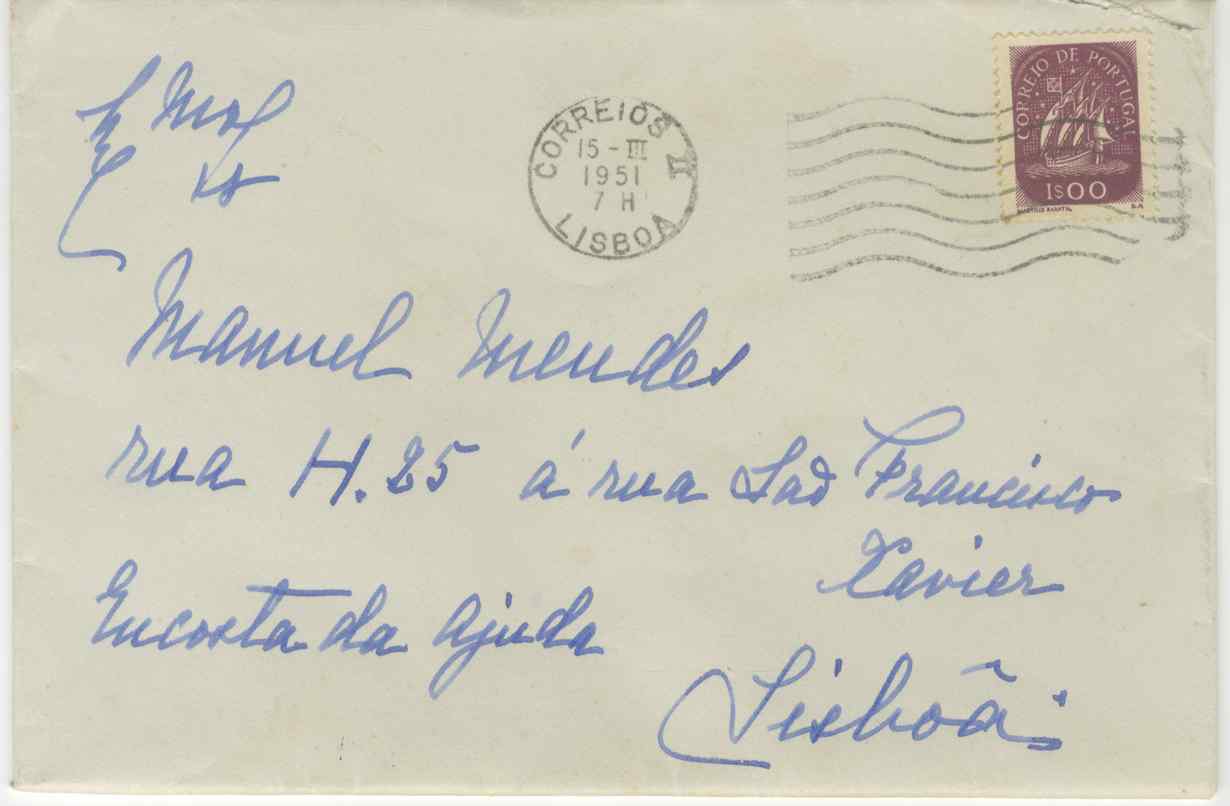 CORREIO DE PORTUGAL
1$00
CORREIOS II
15 - III
1951
7 H
LISBOA
Manuel Mendes
rua H. 25 á rua São Francisco
Xavier
Encosta da Ajuda
Lisbôa